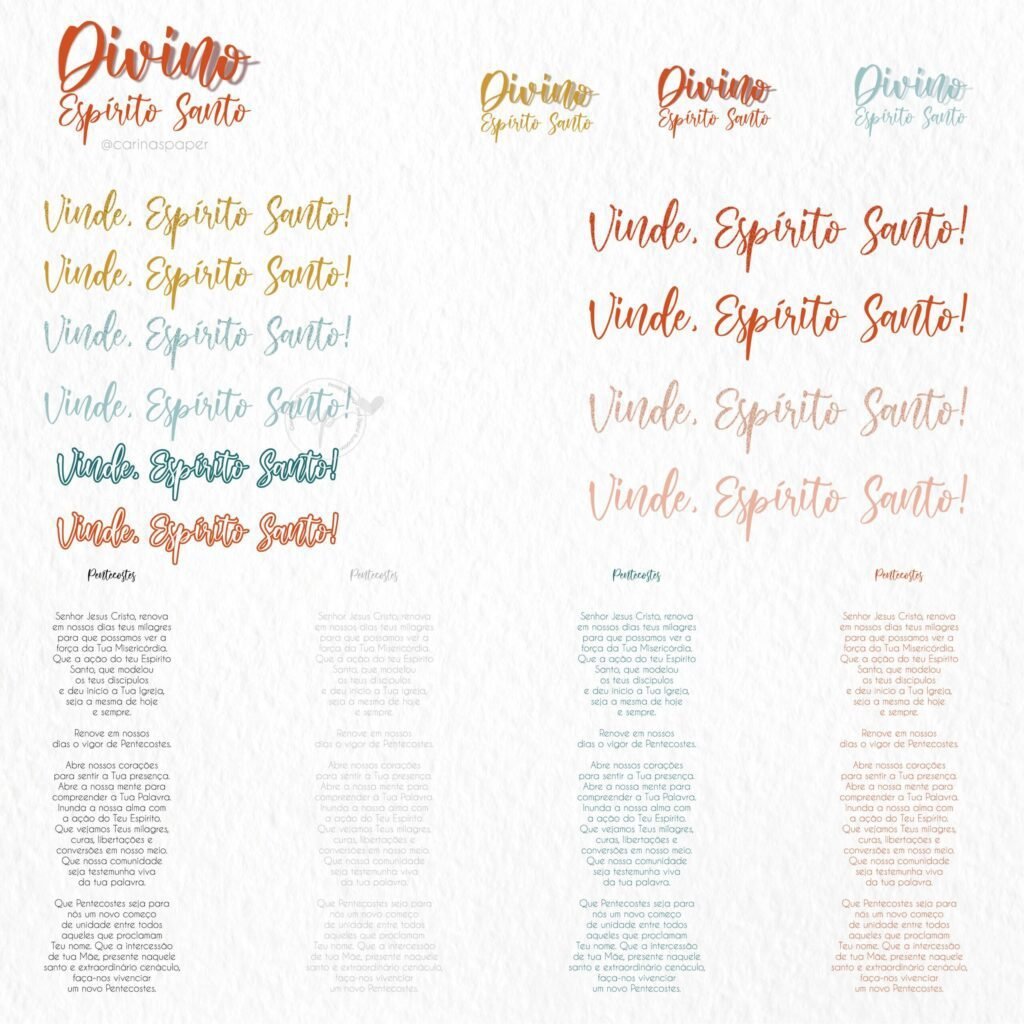 Divino
Espírito Santo
@carinaspaper
Divino
Espírito Santo
Divino
Espírito Santo
Divino
Espírito Santo
Vinde, Espírito Santo!
Vinde, Espírito Santo!
Vinde, Espírito Santo!
Vinde, Espírito Santo!
Vinde, Espírito Santo!
Vinde, Espírito Santo!
Vinde, Espírito Santo!
Vinde, Espírito Santo!
Vinde, Espírito Santo!
Vinde, Espírito Santo!
Pentecostes
Senhor Jesus Cristo, renova
em nossos dias teus milagres
para que possamos ver a
força da Tua Misericórdia.
Que a ação do teu Espírito
Santo, que modelou
os teus discípulos
e deu início a Tua Igreja,
seja a mesma de hoje
e sempre.
Renove em nossos
dias o vigor de Pentecostes.
Abre nossos corações
para sentir a Tua presença.
Abre a nossa mente para
compreender a Tua Palavra.
Inunda a nossa alma com
a ação do Teu Espírito.
Que vejamos Teus milagres,
curas, libertações e
conversões em nosso meio.
Que nossa comunidade
seja testemunha viva
da tua palavra.
Que Pentecostes seja para
nós um novo começo
de unidade entre todos
aqueles que proclamam
Teu nome. Que a intercessão
de tua Mãe, presente naquele
santo e extraordinário cenáculo,
faça-nos vivenciar
um novo Pentecostes.
Pentecostes
Senhor Jesus Cristo, renova
em nossos dias teus milagres
para que possamos ver a
força da Tua Misericórdia.
Que a ação do teu Espírito
Santo, que modelou
os teus discípulos
e deu início a Tua Igreja,
seja a mesma de hoje
e sempre.
Renove em nossos
dias o vigor de Pentecostes.
Abre nossos corações
para sentir a Tua presença.
Abre a nossa mente para
compreender a Tua Palavra.
Inunda a nossa alma com
a ação do Teu Espírito.
Que vejamos Teus milagres,
curas, libertações e
conversões em nosso meio.
Que nossa comunidade
seja testemunha viva
da tua palavra.
Que Pentecostes seja para
nós um novo começo
de unidade entre todos
aqueles que proclamam
Teu nome. Que a intercessão
de tua Mãe, presente naquele
santo e extraordinário cenáculo,
faça-nos vivenciar
um novo Pentecostes.
Pentecostes
Senhor Jesus Cristo, renova
em nossos dias teus milagres
para que possamos ver a
força da Tua Misericórdia.
Que a ação do teu Espírito
Santo, que modelou
os teus discípulos
e deu início a Tua Igreja,
seja a mesma de hoje
e sempre.
Renove em nossos
dias o vigor de Pentecostes.
Abre nossos corações
para sentir a Tua presença.
Abre a nossa mente para
compreender a Tua Palavra.
Inunda a nossa alma com
a ação do Teu Espírito.
Que vejamos Teus milagres,
curas, libertações e
conversões em nosso meio.
Que nossa comunidade
seja testemunha viva
da tua palavra.
Que Pentecostes seja para
nós um novo começo
de unidade entre todos
aqueles que proclamam
Teu nome. Que a intercessão
de tua Mãe, presente naquele
santo e extraordinário cenáculo,
faça-nos vivenciar
um novo Pentecostes.
Pentecostes
Senhor Jesus Cristo, renova
em nossos dias teus milagres
para que possamos ver a
força da Tua Misericórdia.
Que a ação do teu Espírito
Santo, que modelou
os teus discípulos
e deu início a Tua Igreja,
seja a mesma de hoje
e sempre.
Renove em nossos
dias o vigor de Pentecostes.
Abre nossos corações
para sentir a Tua presença.
Abre a nossa mente para
compreender a Tua Palavra.
Inunda a nossa alma com
a ação do Teu Espírito.
Que vejamos Teus milagres,
curas, libertações e
conversões em nosso meio.
Que nossa comunidade
seja testemunha viva
da tua palavra.
Que Pentecostes seja para
nós um novo começo
de unidade entre todos
aqueles que proclamam
Teu nome. Que a intercessão
de tua Mãe, presente naquele
santo e extraordinário cenáculo,
faça-nos vivenciar
um novo Pentecostes.